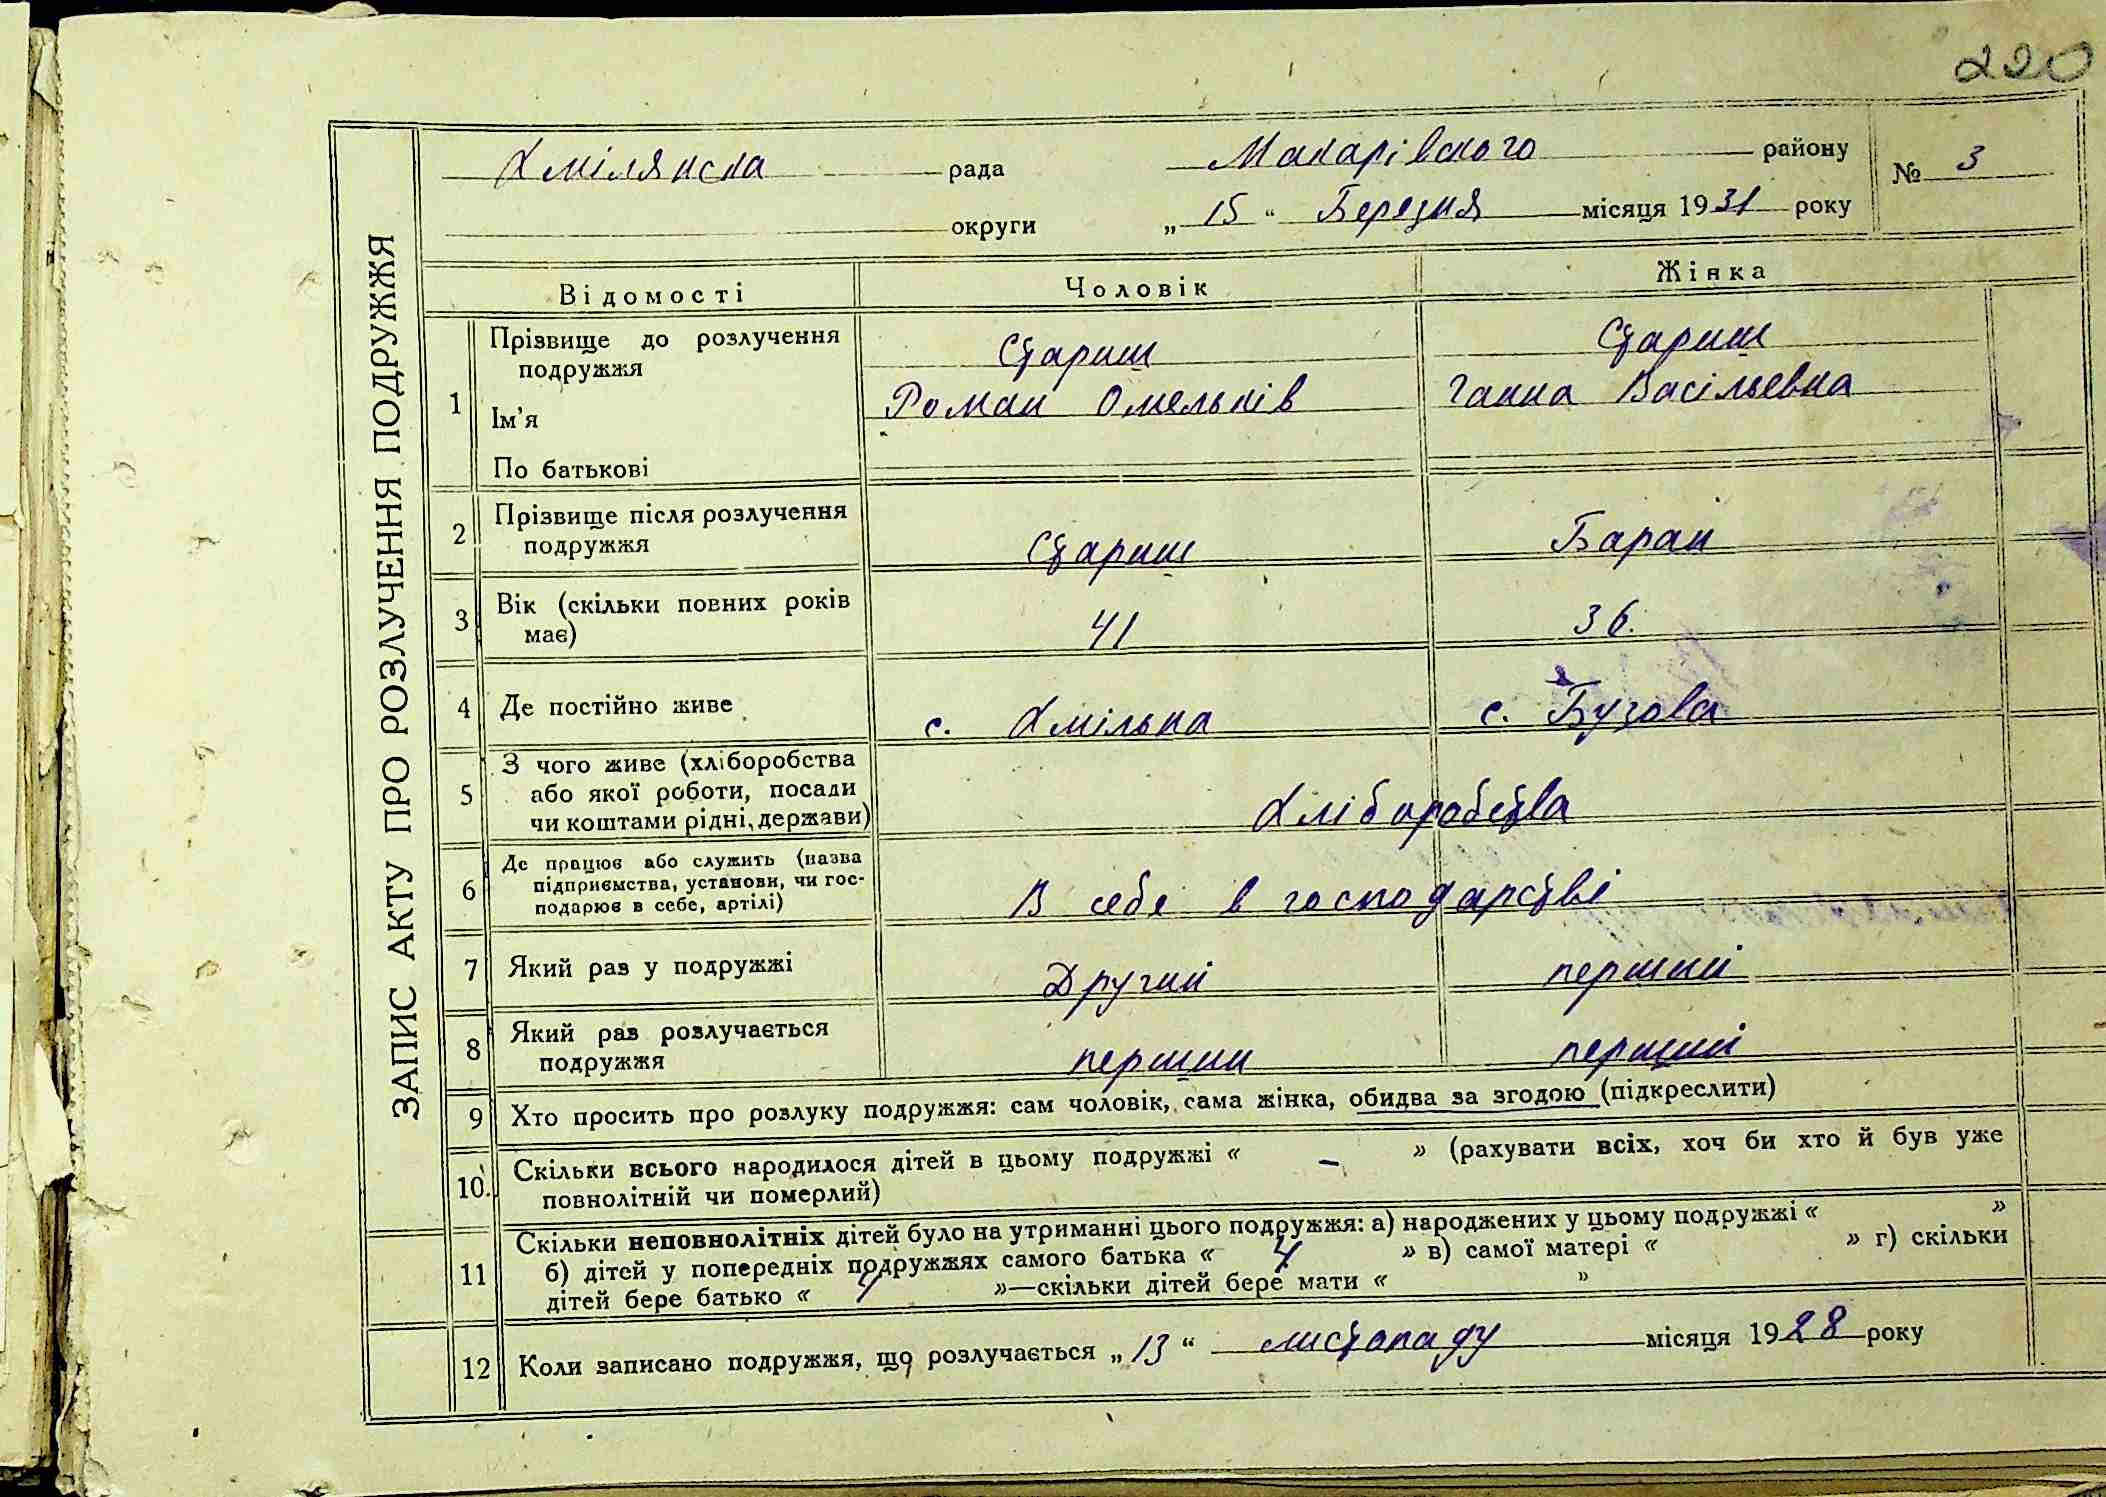 220
ЗАПИС АКТУ ПРО РОЗЛУЧЕННЯ ПОДРУЖЖЯ
Хмілянска рада Макарівського району № 3
округи „ 15 “ Березня місяця 1931 року
Відомості Чоловік Жінка
1 Прізвище до розлучення подружжя Стариш Стариш
Ім’я Роман Омельків Ганна Васільевна
По батькові
2 Прізвище після розлучення
подружжя Стариш Баран
3 Вік (скільки повних років
має) 41 36.
4 Де постійно живе с. Хмільна с. Бузова
5 З чого живе (хліборобства
або якої роботи, посади
чи коштами рідні, держави) Хліборобства
6 Де працює або служить (назва
підприємства, установи, чи гос-
подарює в себе, артілі) В себе в господарстві
7 Який раз у подружжі Другий перший
8 Який раз розлучається
подружжя перший перший
9 Хто просить про розлуку подружжя: сам чоловік, сама жінка, обидва за згодою (підкреслити)
10. Скільки всього народилося дітей в цьому подружжі « – » (рахувати всіх, хоч би хто й був уже
повнолітній чи померлий)
11 Скільки неповнолітніх дітей було на утриманні цього подружжя: а) народжених у цьому подружжі « »
б) дітей у попередніх подружжях самого батька « 4 » в) самої матері « » г) скільки
дітей бере батько « 4 »—скільки дітей бере мати « »
12 Коли записано подружжя, що розлучається „ 13 “ листопаду місяця 1928 року